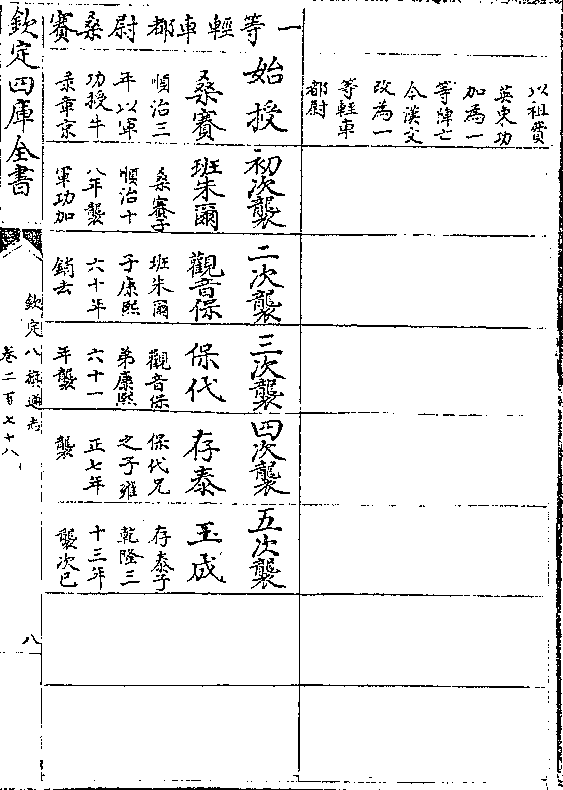 以祖費
英東功
加為一
等陣亡
今漢文
改為一
等輕車
都尉
一等輕車都尉桑賽
始授
桑賽
順治三
年以軍
功授牛
录章京
初次襲
班朱爾
桑賽子
順治十
八年襲
軍功加
二次襲
觀音保
班朱爾
子康熙
六十年
銷去
三次襲
保代
觀音保
弟康熙
六十一
年襲
四次襲
存泰
保代兄
之子雍
正七年
襲
五次襲
玉成
存泰子
乾隆三
十三年
襲次已
欽定四庫全書
欽定八旗通志
卷二百七十八
八